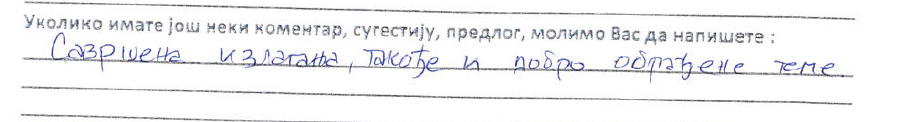 Уколико имате још неки коментар, сугестију, предлог, молимо Вас да напишете :
Сазршена излагања, такође и добро обрађене теме